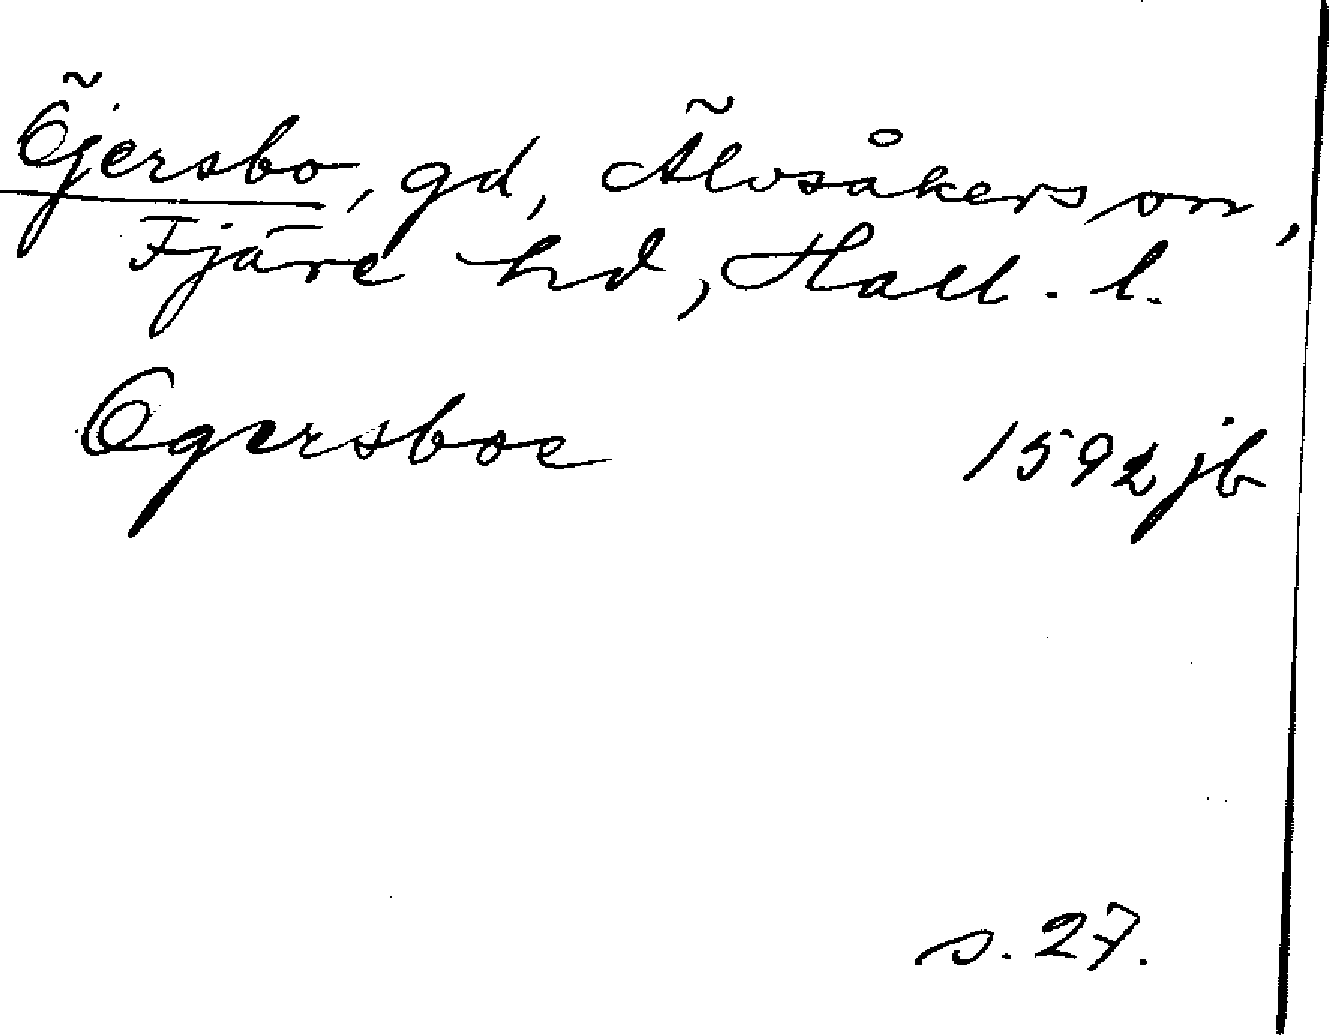 Öjersbo, gd, Älvsåkers sn,
Fjäre hd, Hall. l.
Ögersboe 1592 jb
s. 27.